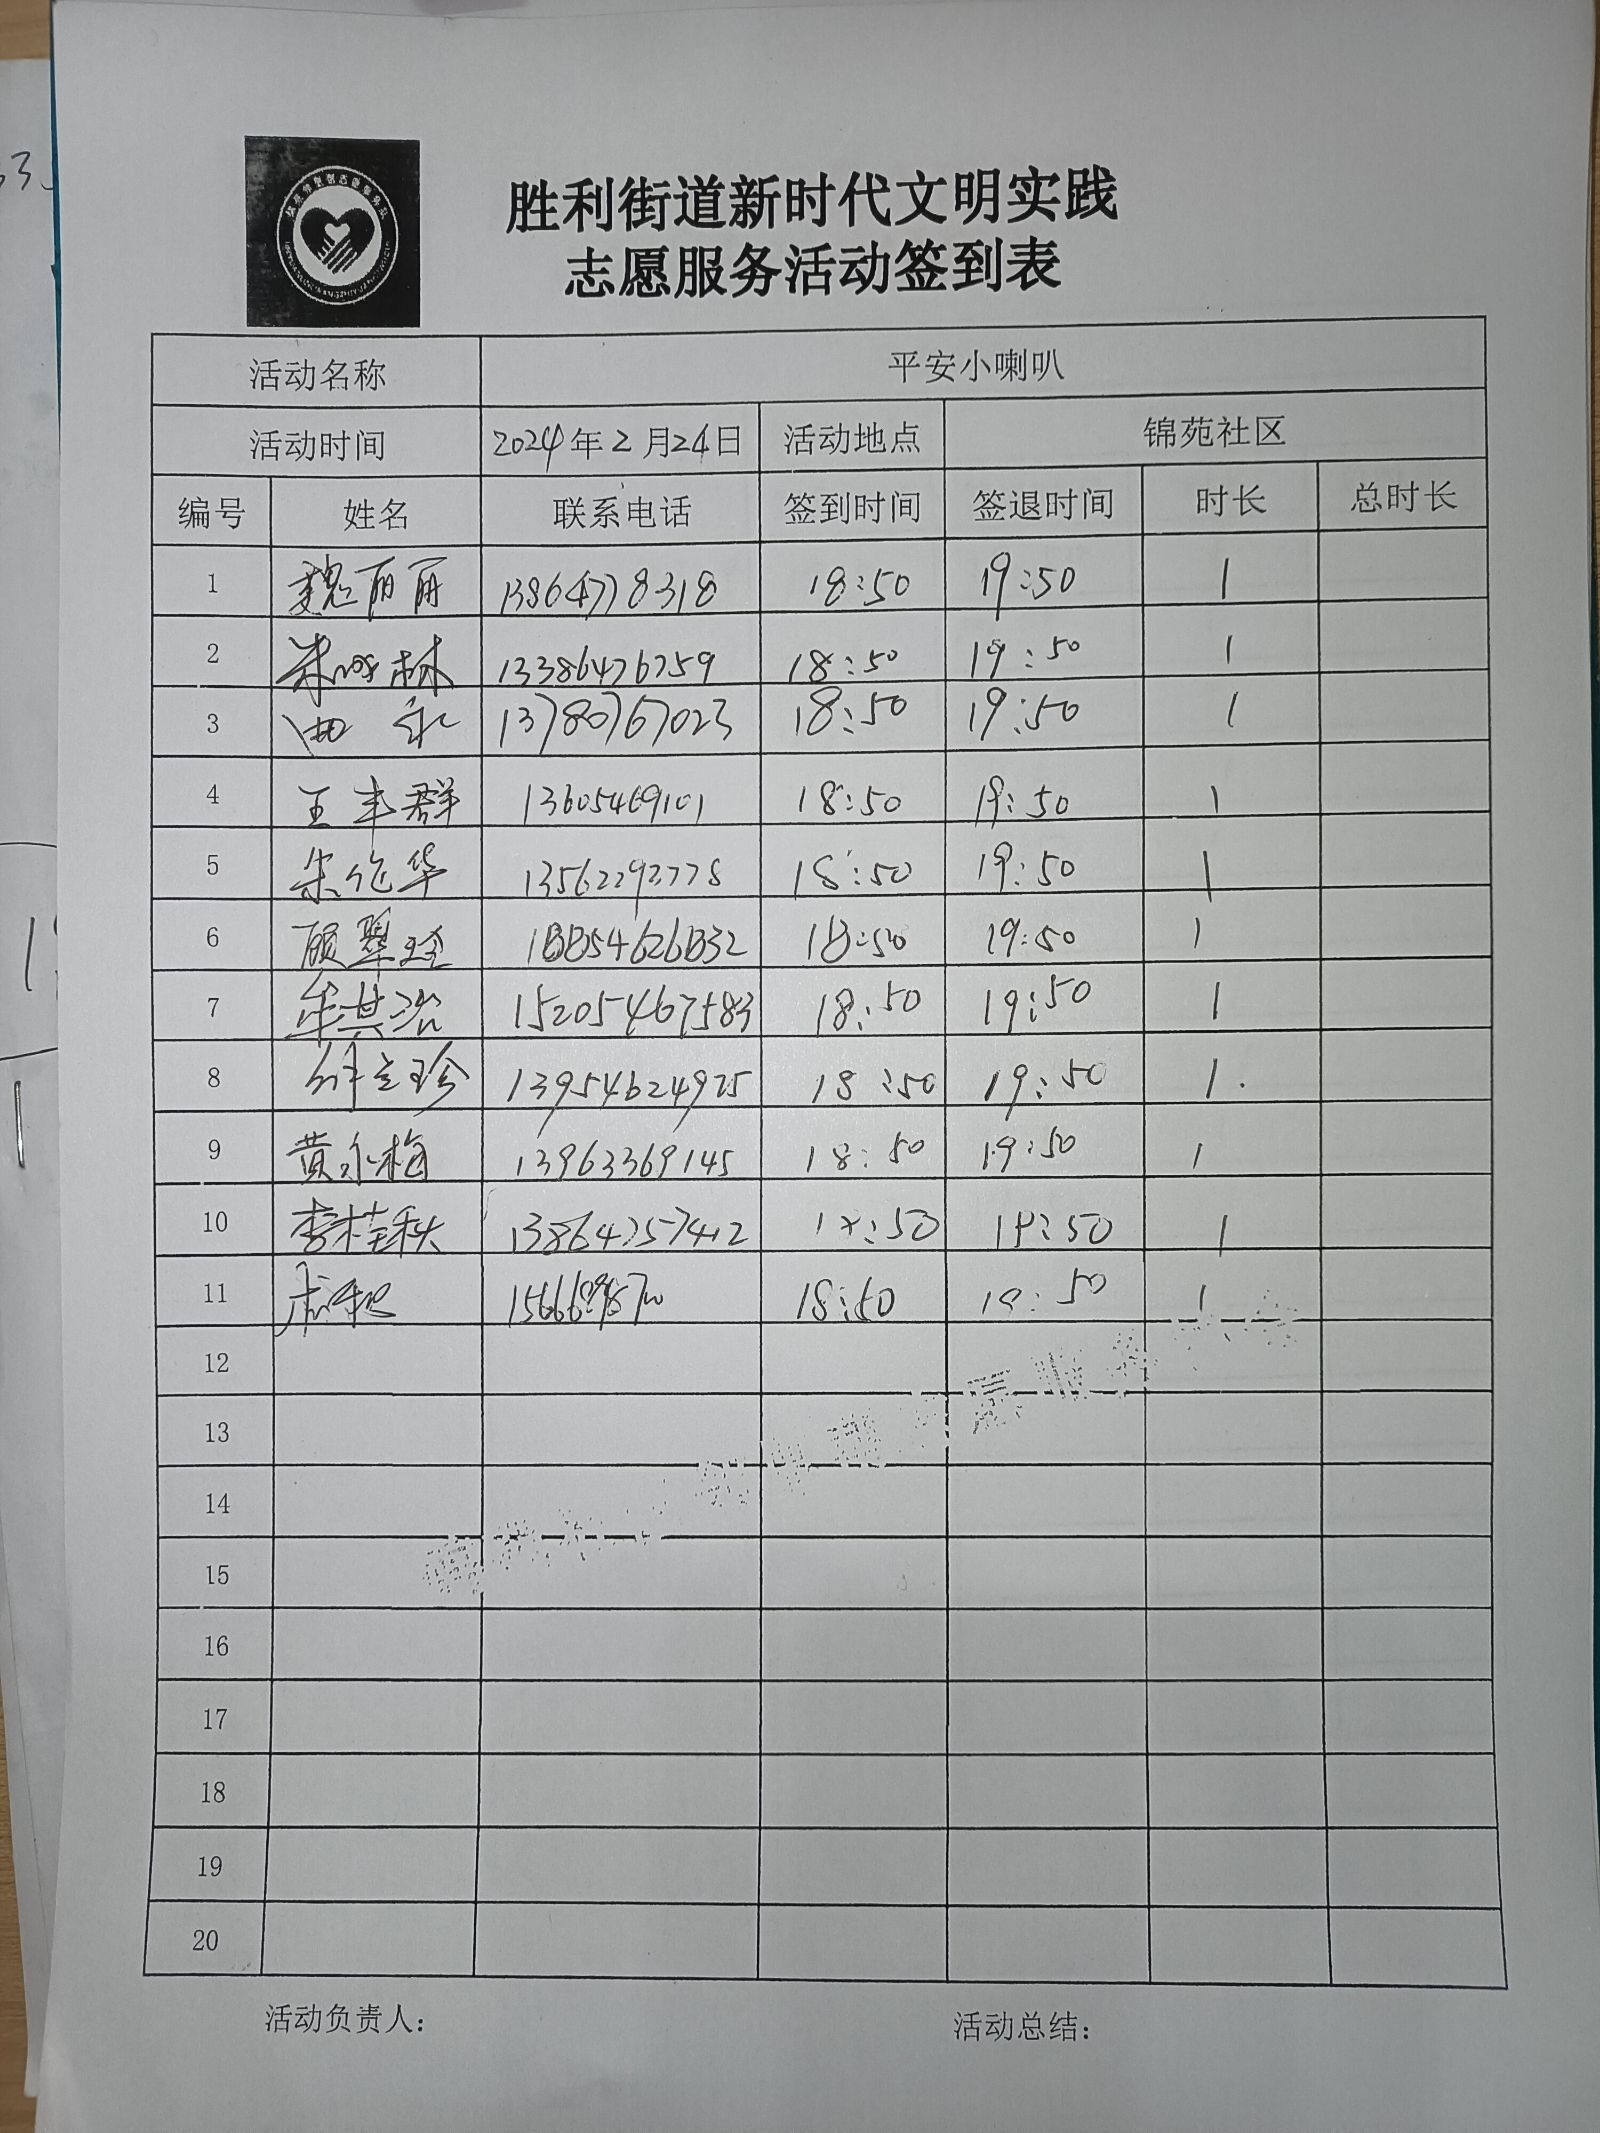 胜利街道新时代文明实践
志愿服务活动签到表
活动名称 平安小喇叭
活动时间 2024年2月24日 活动地点 锦苑社区
编号 姓名 联系电话 签到时间 签退时间 时长 总时长
1 魏丽丽 13864778318 18:50 19:50 1
2 13386476759 18:50 19:50 1
3 13780767023 18:50 19:50 1
4 王丰群 13605469101 18:50 19:50 1
5 朱作华 13562292778 18:50 19:50 1
6 顾翠玲 18:50 19:50 1
7 牟其治 15205467583 18:50 19:50 1
8 13954624925 18:50 19:50 1
9 黄永梅 13963369145 18:50 19:50 1
10 李桂秋 13864757412 18:50 19:50 1
11 18:50 19:50 1
12
13
14
15
16
17
18
19
20
活动负责人： 活动总结：